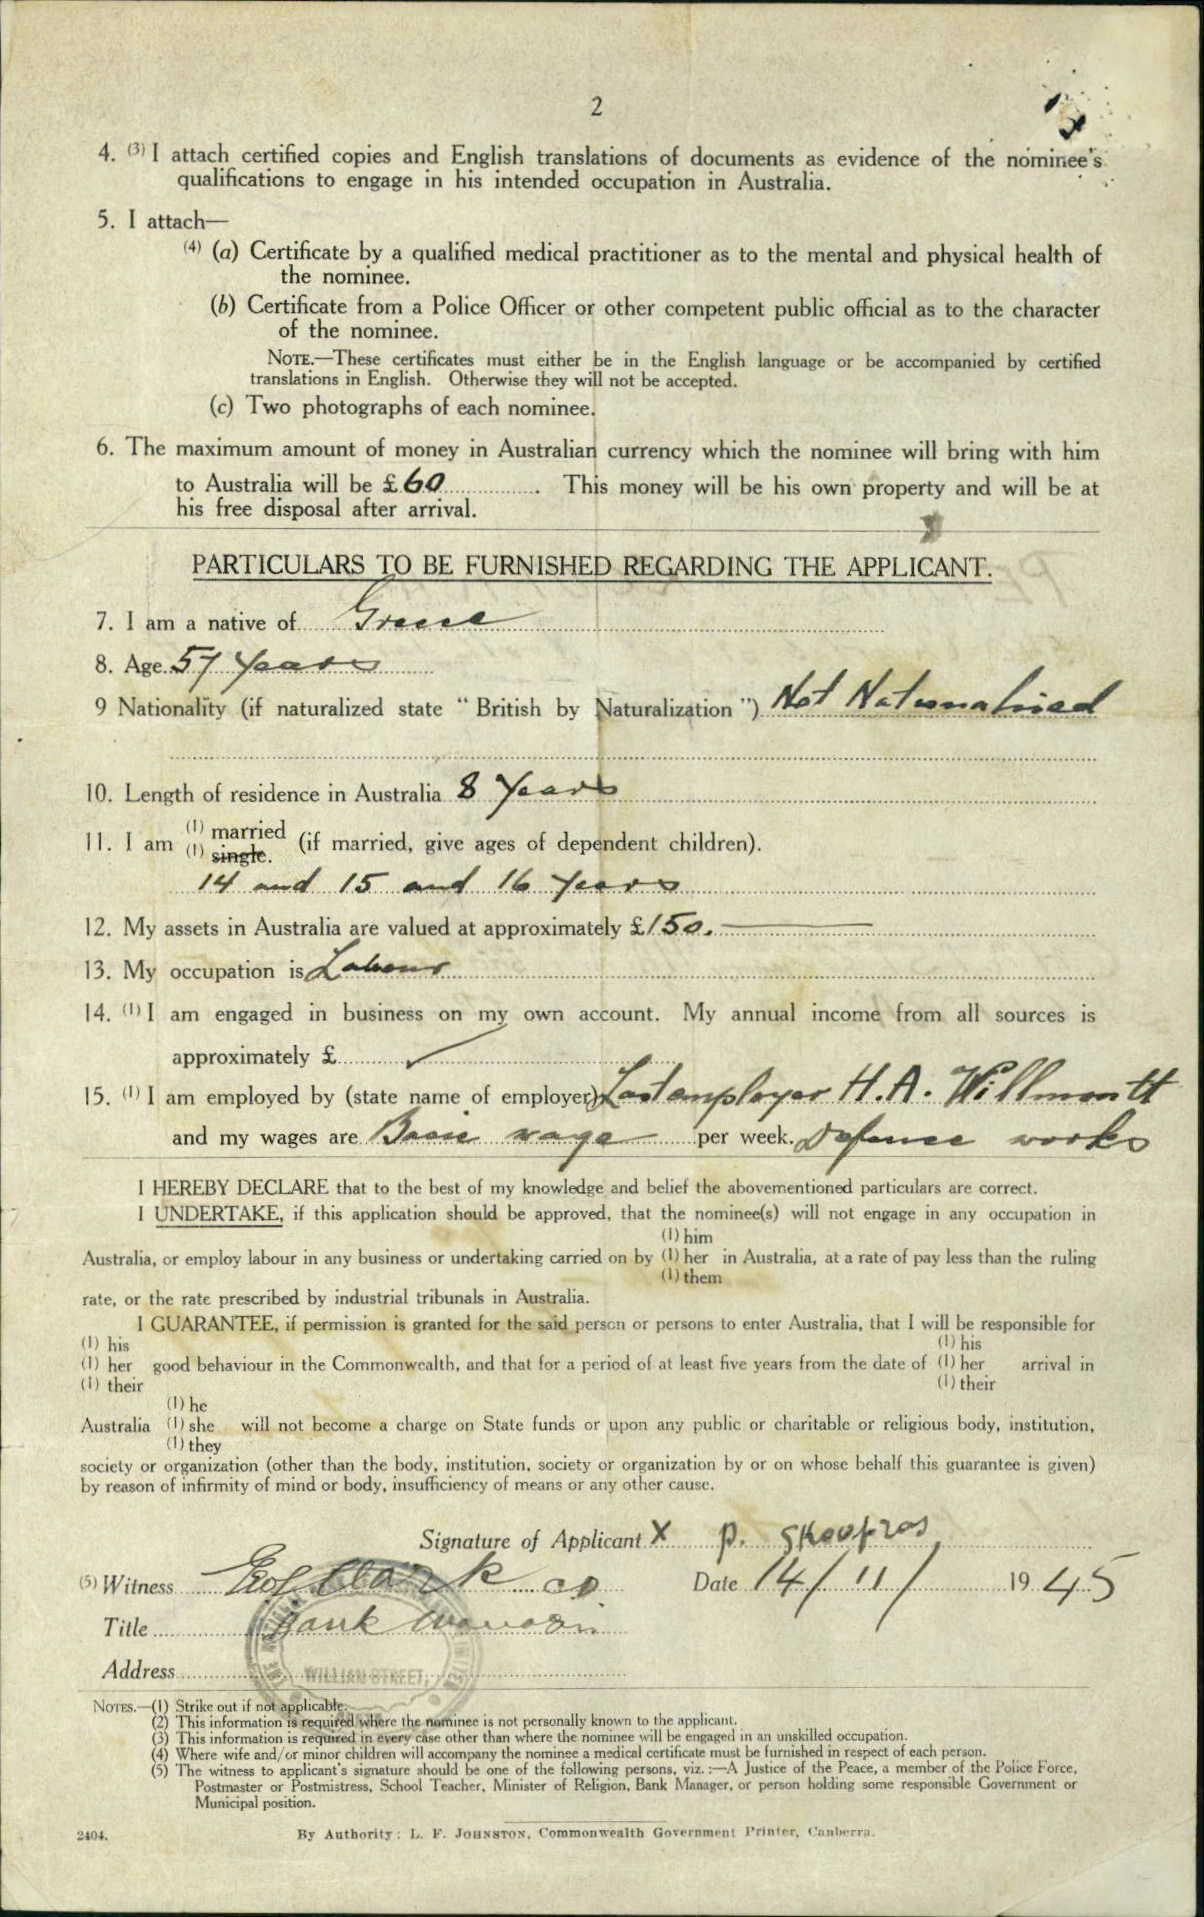 2
4. (3) I attach certified copies and English translations of documents as evidence of the nominee's
qualifications to engage in his intended occupation in Australia.
5. I attach—
(4) (a) Certificate by a qualified medical practitioner as to the mental and physical health of
the nominee.
(b) Certificate from a Police Officer or other competent public official as to the character
of the nominee.
NOTE.—These certificates must either be in the English language or be accompanied by certified
translations in English. Otherwise they will not be accepted.
(c) Two photographs of each nominee.
6. The maximum amount of money in Australian currency which the nominee will bring with him
to Australia will be £60. This money will be his own property and will be at
his free disposal after arrival.
PARTICULARS TO BE FURNISHED REGARDING THE APPLICANT.
7. I am a native of Greece
8. Age 57 Years
9 Nationality (if naturalized state "British by Naturalization") Not Naturalised
10. Length of residence in Australia 8 Years
11. I am (1) married (1) single. (if married, give ages of dependent children).
14 and 15 and 16 years
12. My assets in Australia are valued at approximately £150.
13. My occupation is Labour
14. (1) I am engaged in business on my own account. My annual income from all sources is
approximately £
15. (1) I am employed by (state name of employer) Last employer H.A. Willmontt
and my wages are Basic wage per week. Defence works
I HEREBY DECLARE that to the best of my knowledge and belief the abovementioned particulars are correct.
I UNDERTAKE, if this application should be approved, that the nominee(s) will not engage in any occupation in
(1) him
Australia, or employ labour in any business or undertaking carried on by (1) her in Australia, at a rate of pay less than the ruling
(1) them
rate, or the rate prescribed by industrial tribunals in Australia.
I GUARANTEE, if permission is granted for the said person or persons to enter Australia, that I will be responsible for
(1) his (1) his
(1) her good behaviour in the Commonwealth, and that for a period of at least five years from the date of (1) her arrival in
(1) their (1) their
(1) he
Australia (1) she will not become a charge on State funds or upon any public or charitable or religious body, institution,
(1) they
society or organization (other than the body, institution, society or organization by or on whose behalf this guarantee is given)
by reason of infirmity of mind or body, insufficiency of means or any other cause.
Signature of Applicant X P. Skoufzos
(5) Witness Clark
Date 14/11/1945
Title Bank
Address
WILLIAM STREET,
NOTES.—(1) Strike out if not applicable.
(2) This information is required where the nominee is not personally known to the applicant.
(3) This information is required in every case other than where the nominee will be engaged in an unskilled occupation.
(4) Where wife and/or minor children will accompany the nominee a medical certificate must be furnished in respect of each person.
(5) The witness to applicant's signature should be one of the following persons, viz.:—A Justice of the Peace, a member of the Police Force,
Postmaster or Postmistress, School Teacher, Minister of Religion, Bank Manager, or person holding some responsible Government or
Municipal position.
2404. By Authority: L. F. JOHNSTON, Commonwealth Government Printer, Canberra.